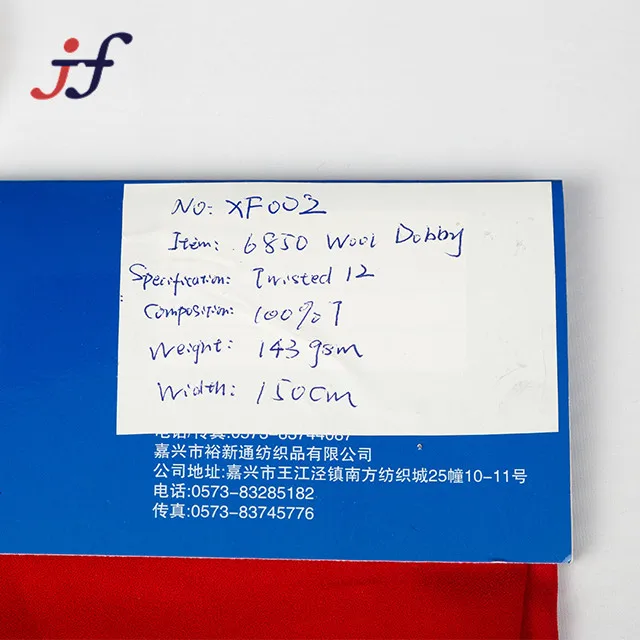 jf
No: XF002
Item: 6850 Wool Dobby
Specification: Twisted 12
Composition: 100%T
Weight: 143gsm
Width: 150cm
嘉兴市裕新通纺织品有限公司
公司地址:嘉兴市王江泾镇南方纺织城25幢10-11号
电话:0573-83285182
传真:0573-83745776